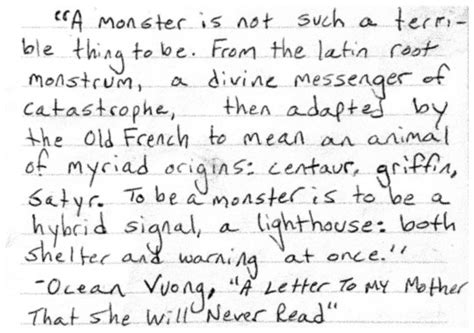 "A monster is not such a terri-
ble thing to be. From the latin root
monstrum, a divine messenger of
catastrophe, then adapted by
the Old French to mean an animal
of myriad origins: centaur, griffin,
satyr. To be a monster is to be a
hybrid signal, a lighthouse: both
shelter and warning at once."
-Ocean Vuong, "A Letter To My Mother
That She Will Never Read"